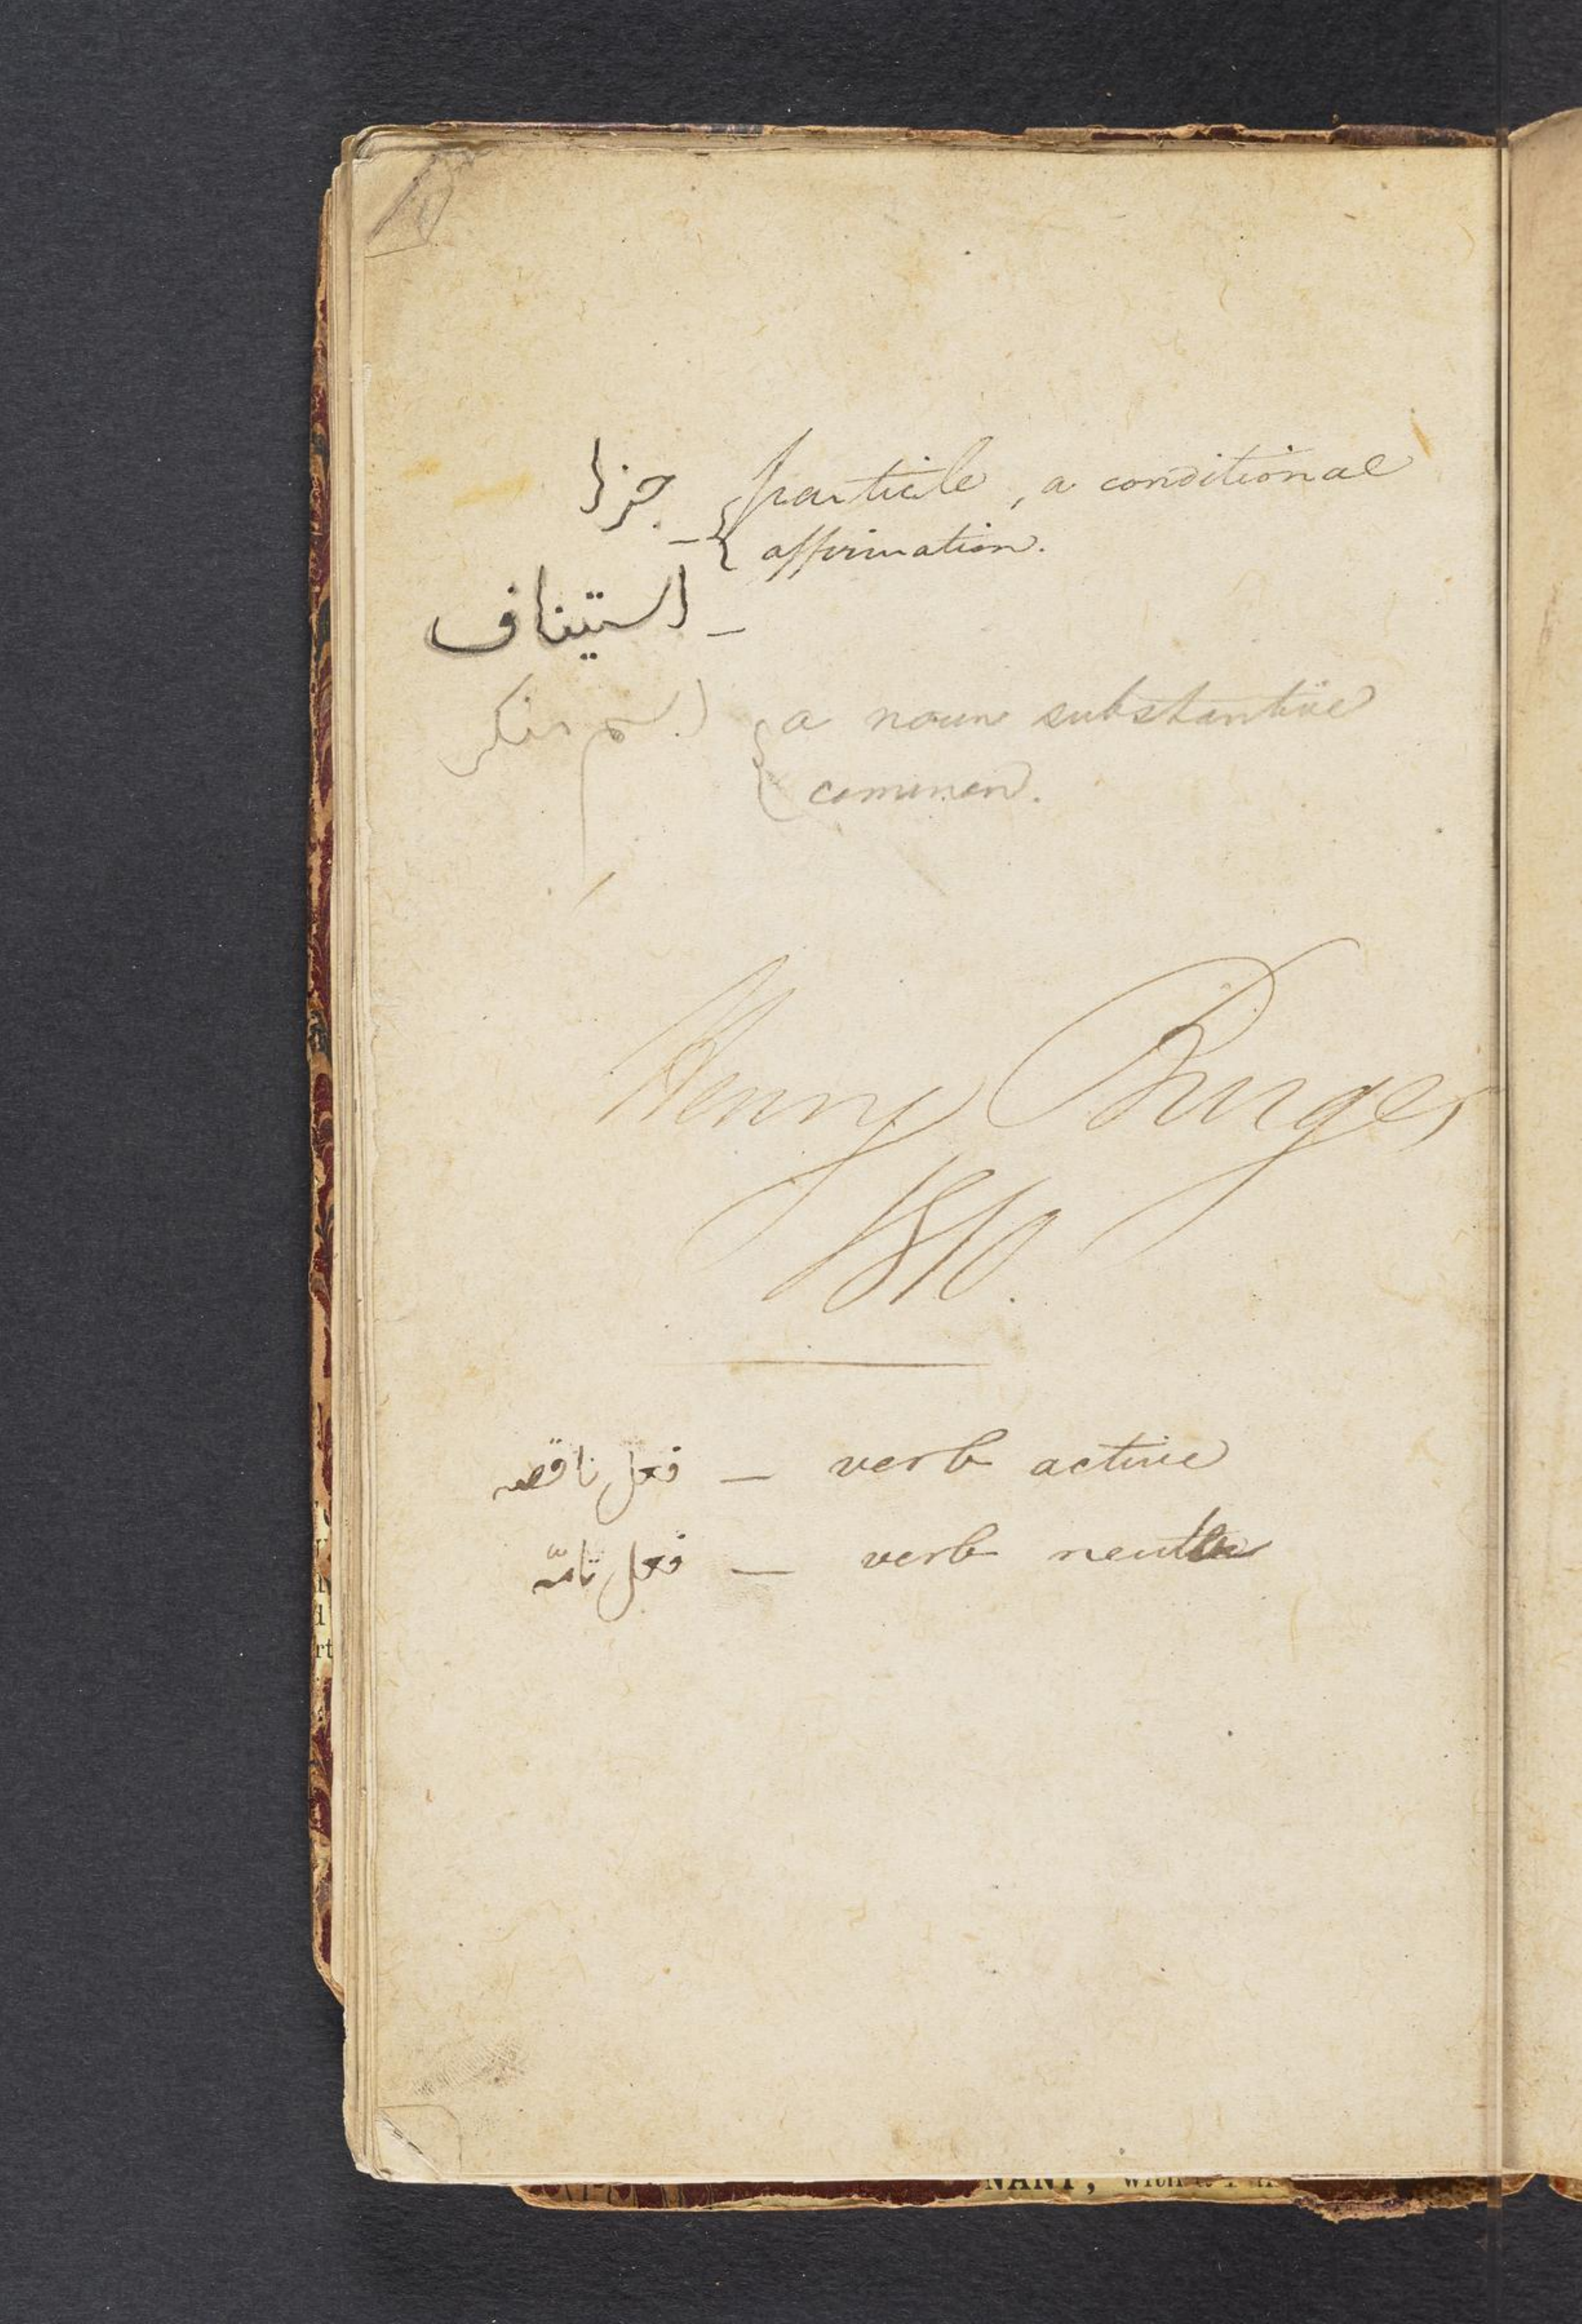 جزا – { particle, a conditional
affirmation.
استيناف –
اسم منكر { a noun substantive
common.
Henry Burges
1810.
فعل ناقصه – verb active
فعل تامّه – verb neuter
NANT, with